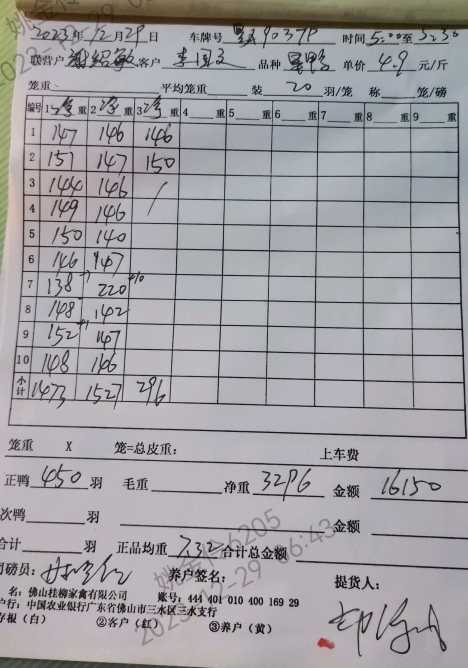 2023年12月29日 车牌号 90379 时间5:00至5:30
联营户 谢绍敏 客户 李国文 品种 单价 4.9 元/斤
笼重 平均笼重 装 20 羽/笼 称 笼/磅
编号 1 净重 2 净重 3 净重 4 重 5 重 6 重 7 重 8 重 9 重
1 147 146 146
2 151 147 150
3 144 146 /
4 149 146
5 150 140
6 146 147
7 138 220
8 148 142
9 152 147
10 148 146
小计 1473 1527 296
笼重 X 笼=总皮重: 上车费
正鸭 450 羽 毛重 净重 3296 金额 16150
次鸭 羽 金额
合计 羽 正品均重 7.32 合计总金额
司磅员: 养户签名: 提货人:
名: 佛山桂柳家禽有限公司 账号: 444 401 010 400 169 29
户行: 中国农业银行广东省佛山市三水区三水支行
存根(白) ②客户(红) ③养户(黄)